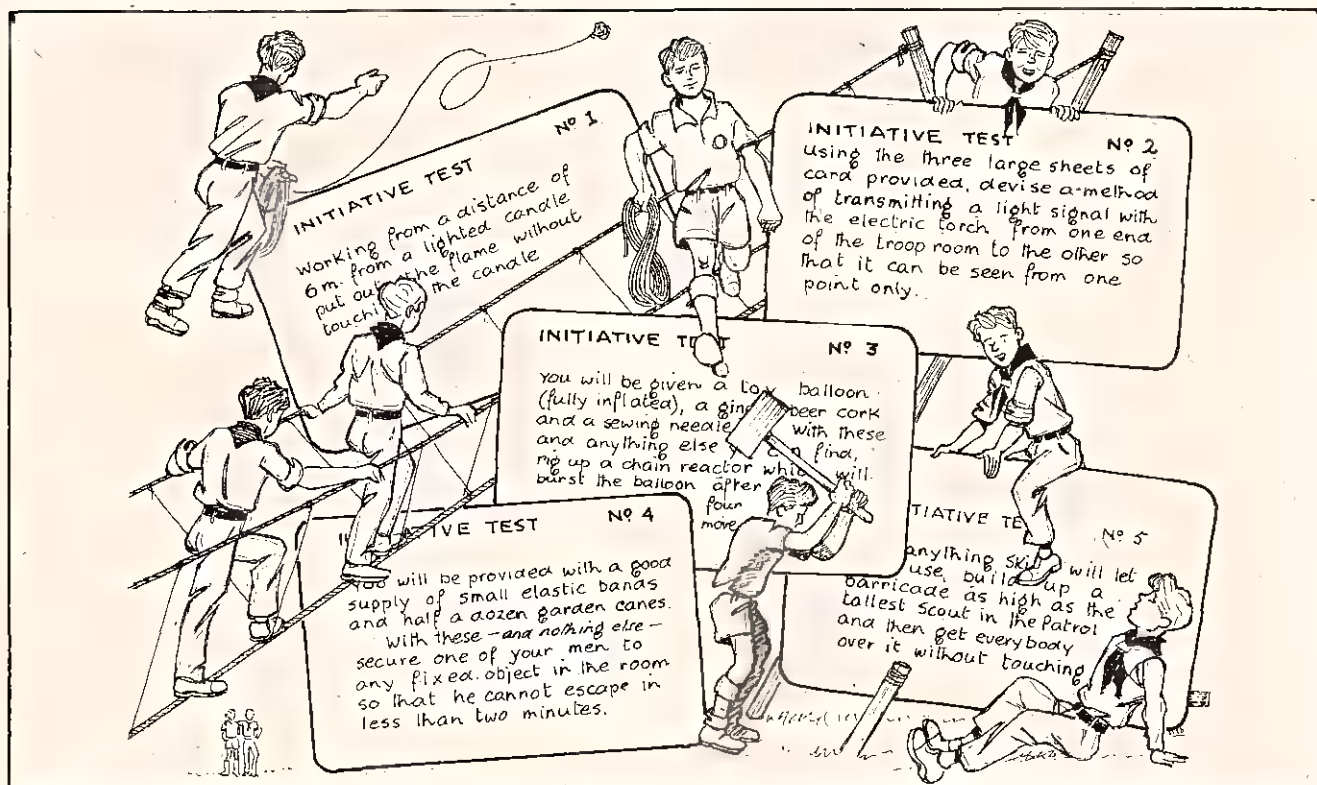 INITIATIVE TEST
Nº 1
Working from a distance of
6 m. from a lighted candle
put out the flame without
the candle
INITIATIVE TEST
Nº 2
Using the three large sheets of
card provided, devise a method
of transmitting a light signal with
the electric torch from one end
of the troop room to the other so
that it can be seen from one
point only.
INITIATIVE
Nº 3
You will be given a balloon
(fully inflated), a beer cork
and a sewing needle with these
and anything else find,
rig up a chain reactor which will
burst the balloon after
four
move
TEST
Nº 4
You will be provided with a good
supply of small elastic bands
and half a dozen garden canes.
With these – and nothing else –
secure one of your men to
any fixed object in the room
so that he cannot escape in
less than two minutes.
Nº 5
anything will let
use, build up a
barricade as high as the
tallest Scout in the Patrol
and then get everybody
over it without touching